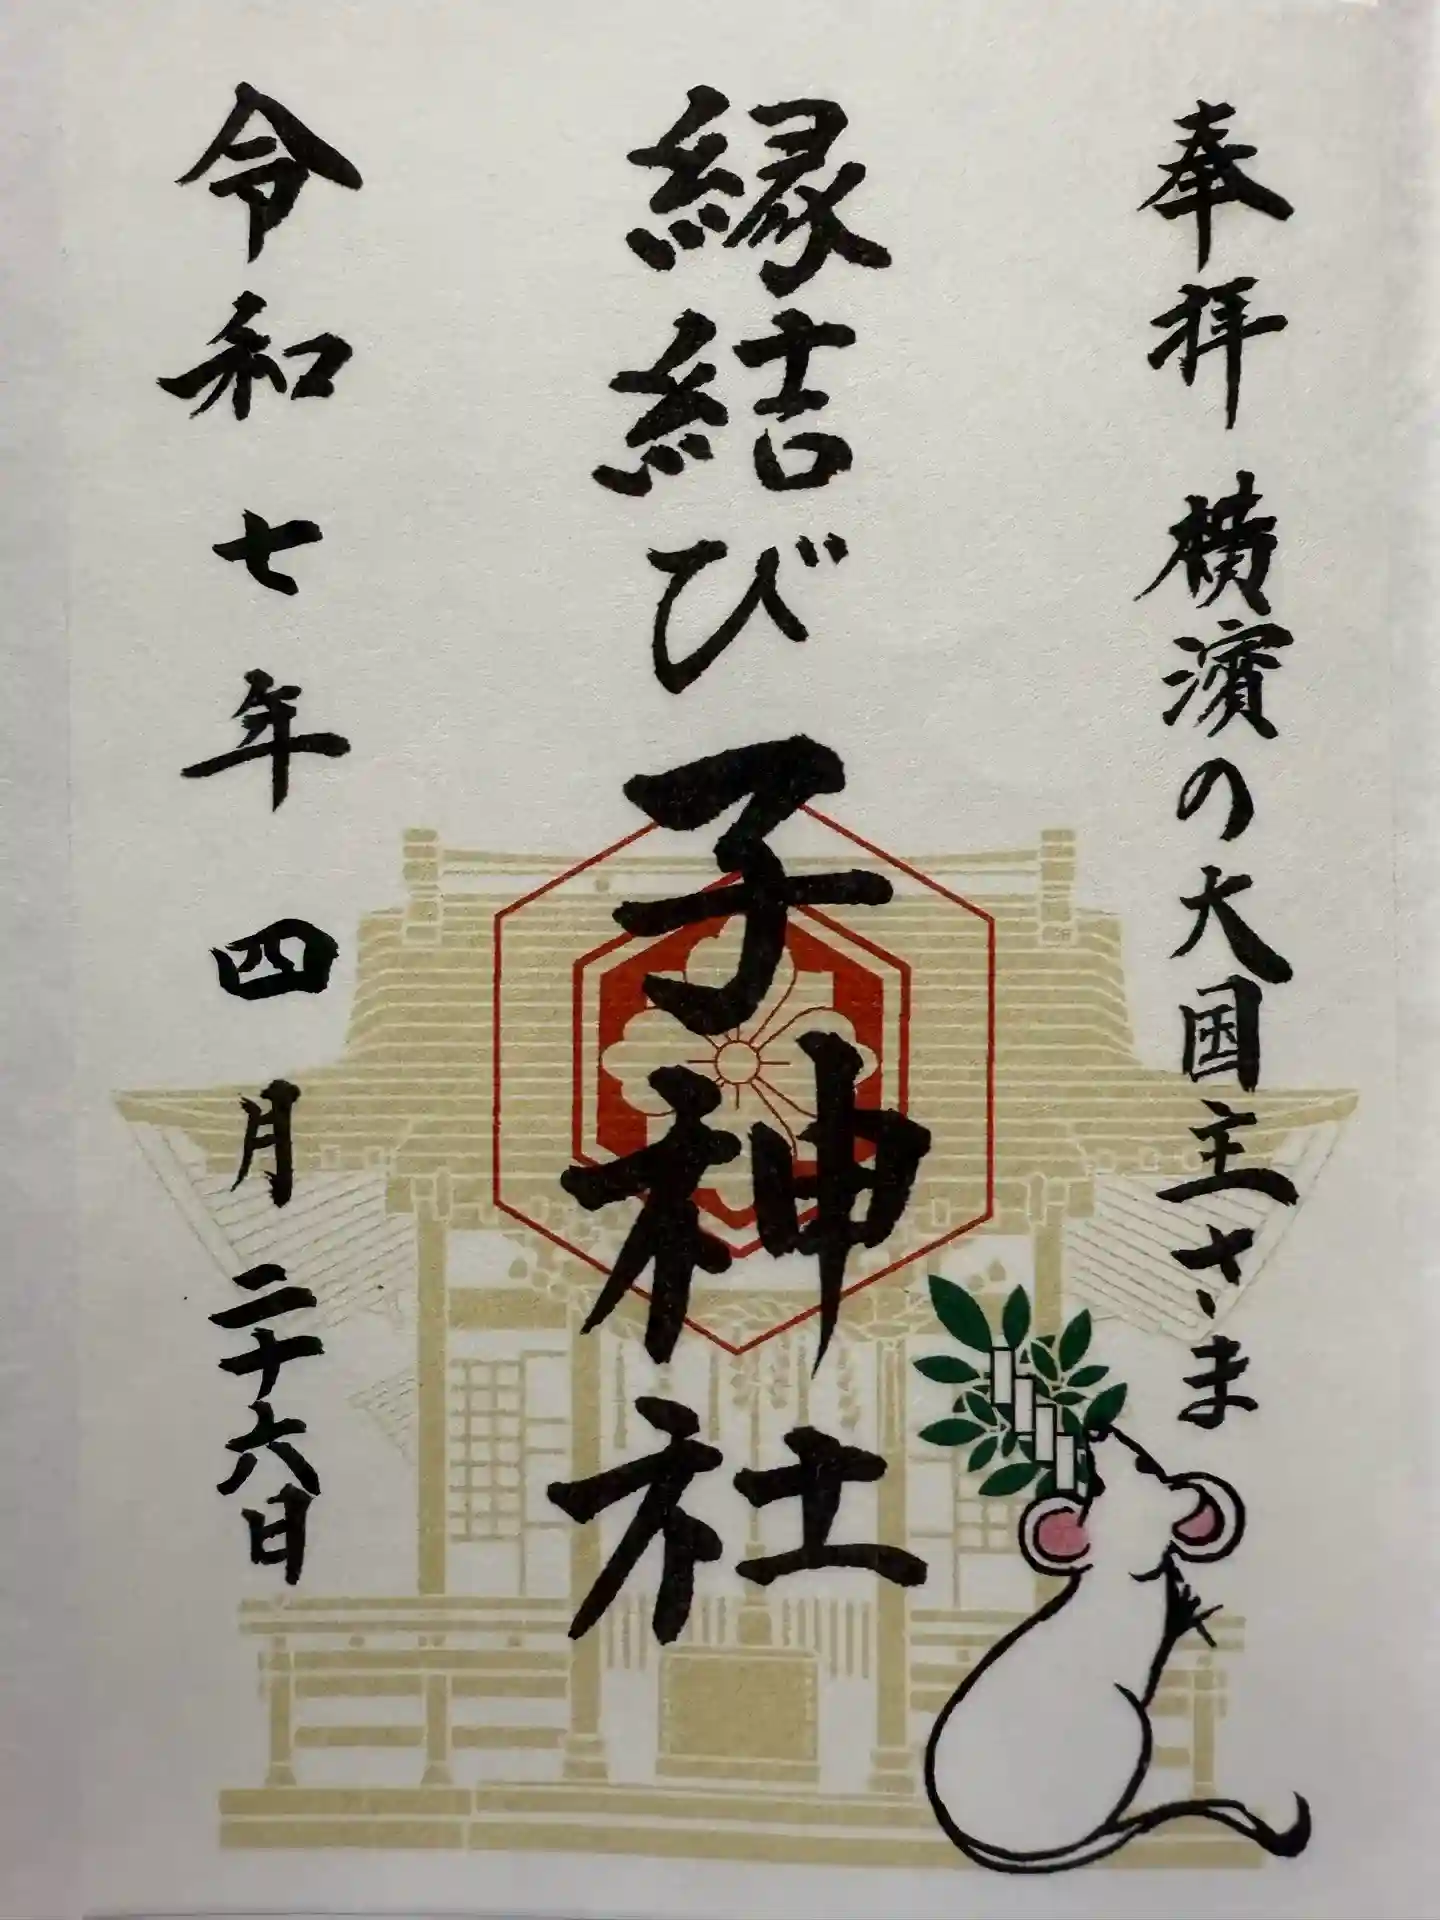 奉拝 横濱の大国主さゝま
縁結び子神社
令和七年四月二十六日